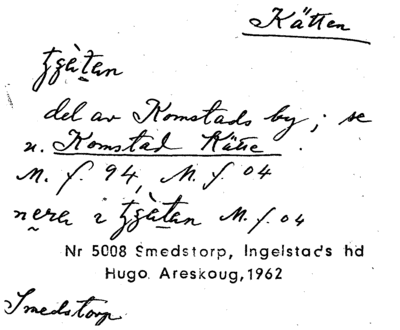 Kätten
tzätan
del av Komstads by; se
u. Komstad Kätte.
M. f. 94, M. f. 04
nera i tzätan M. f. 04
Nr 5008 Smedstorp, Ingelstads hd
Hugo Areskoug, 1962
Smedstorp